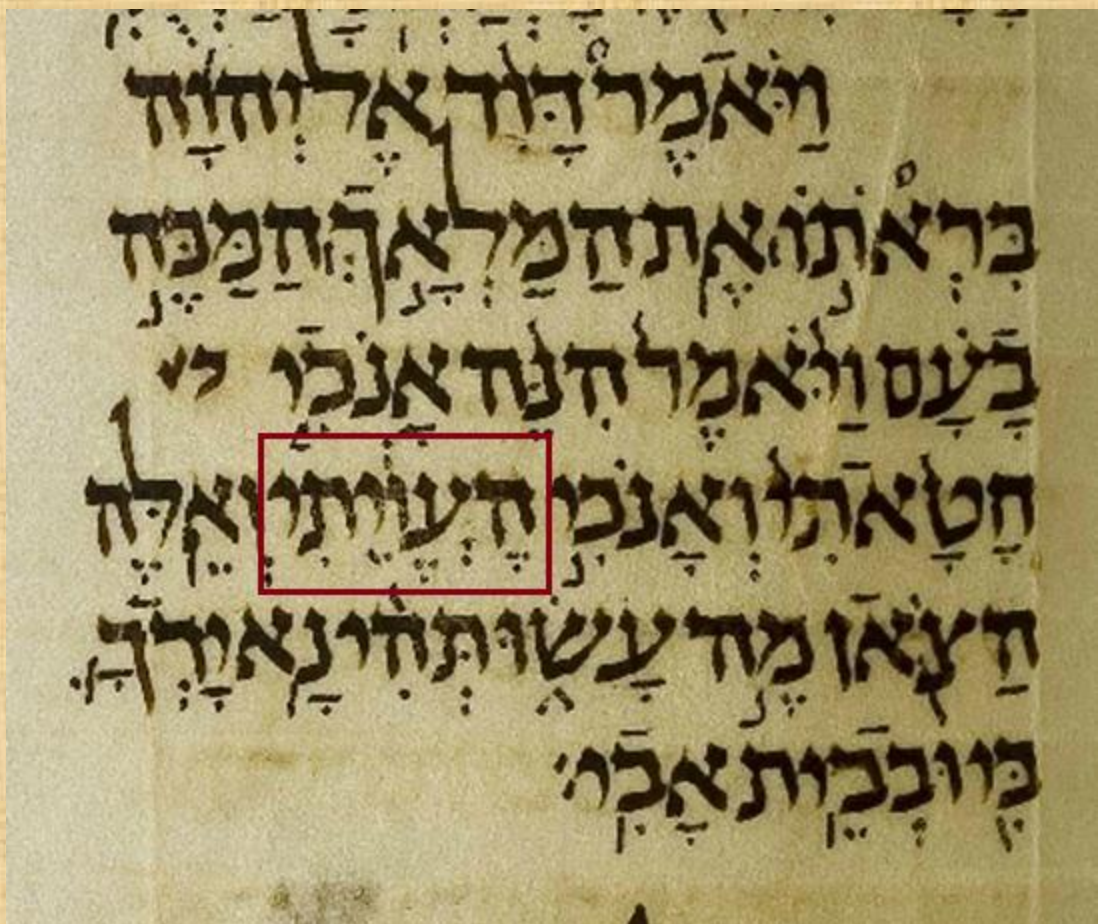 וַיֹּאמֶר֩ דָּוִ֨ד אֶל יְהוָ֜ה
בִּרְאֹת֣וֹ ׀ אֶת הַמַּלְאָ֣ךְ ׀ הַמַּכֶּ֣ה
בָעָ֗ם וַיֹּ֙אמֶר֙ הִנֵּ֨ה אָנֹכִ֤י
חָטָ֙אתִי֙ וְאָנֹכִ֣י הֶעֱוֵ֔יתִי וְאֵ֥לֶּה
הַצֹּ֖אן מֶ֣ה עָשׂ֑וּ תְּהִ֨י נָ֥א יָדְךָ֛
בִּ֖י וּבְבֵ֥ית אָבִֽי׃